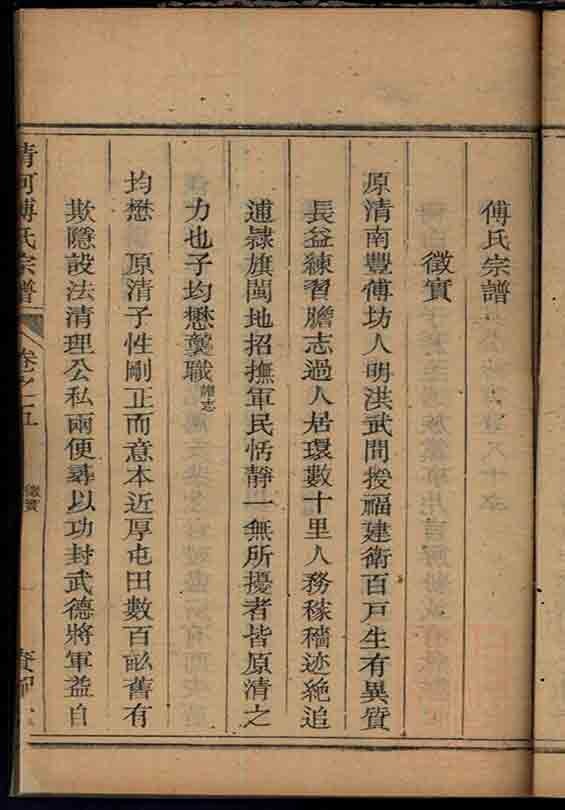 傅氏宗譜
徵實
原清南豐傅坊人明洪武間授福建衛百戸生有異質
長益練習膽志過人居環數十里人務稼穡迹絶追
逋隷旗閩地招撫軍民恬靜一無所擾者皆原清之
力也子均懋襲職
均懋 原清子性剛正而意本近厚屯田數百畝舊有
欺隱設法清理公私兩便尋以功封武德將軍益自
清河傅氏宗譜 卷之五 徵實 一